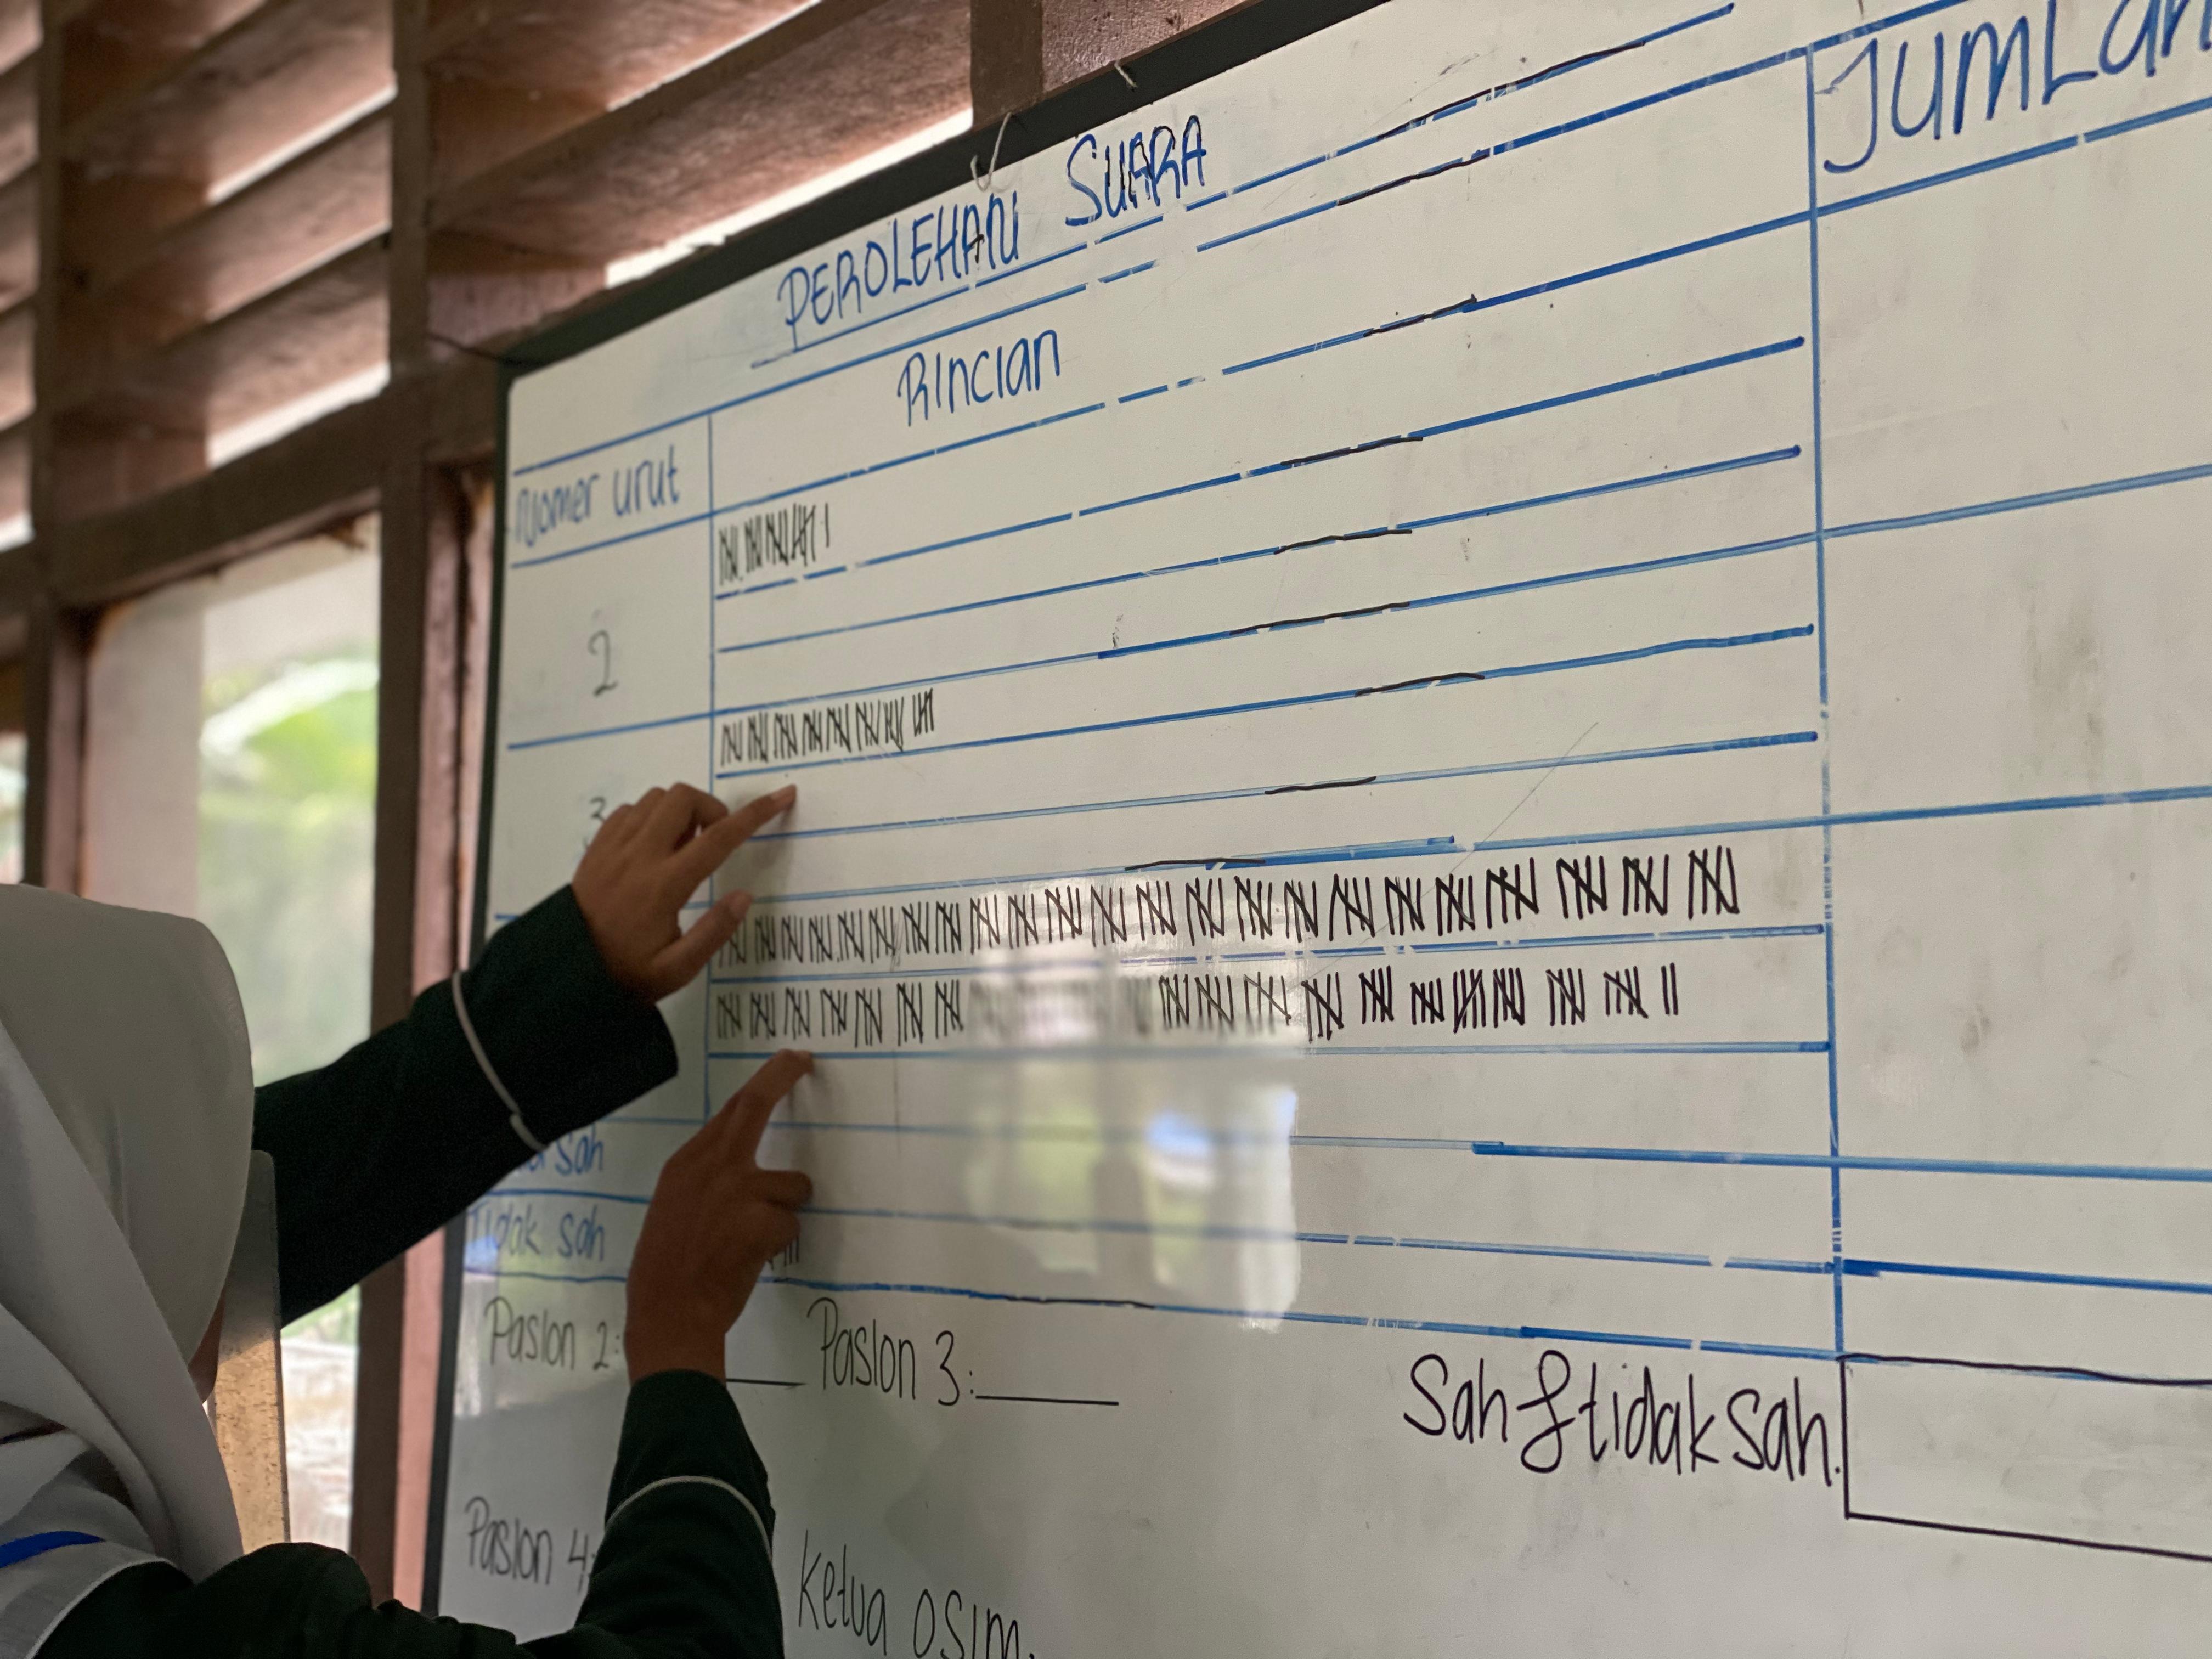 PEROLEHAN SUARA
Nomer urut Rincian Jumlah
2
3
sah
Tidak sah
Paslon 2: Paslon 3:
Sah & tidak sah.
Paslon 4:
Ketua OSIM.